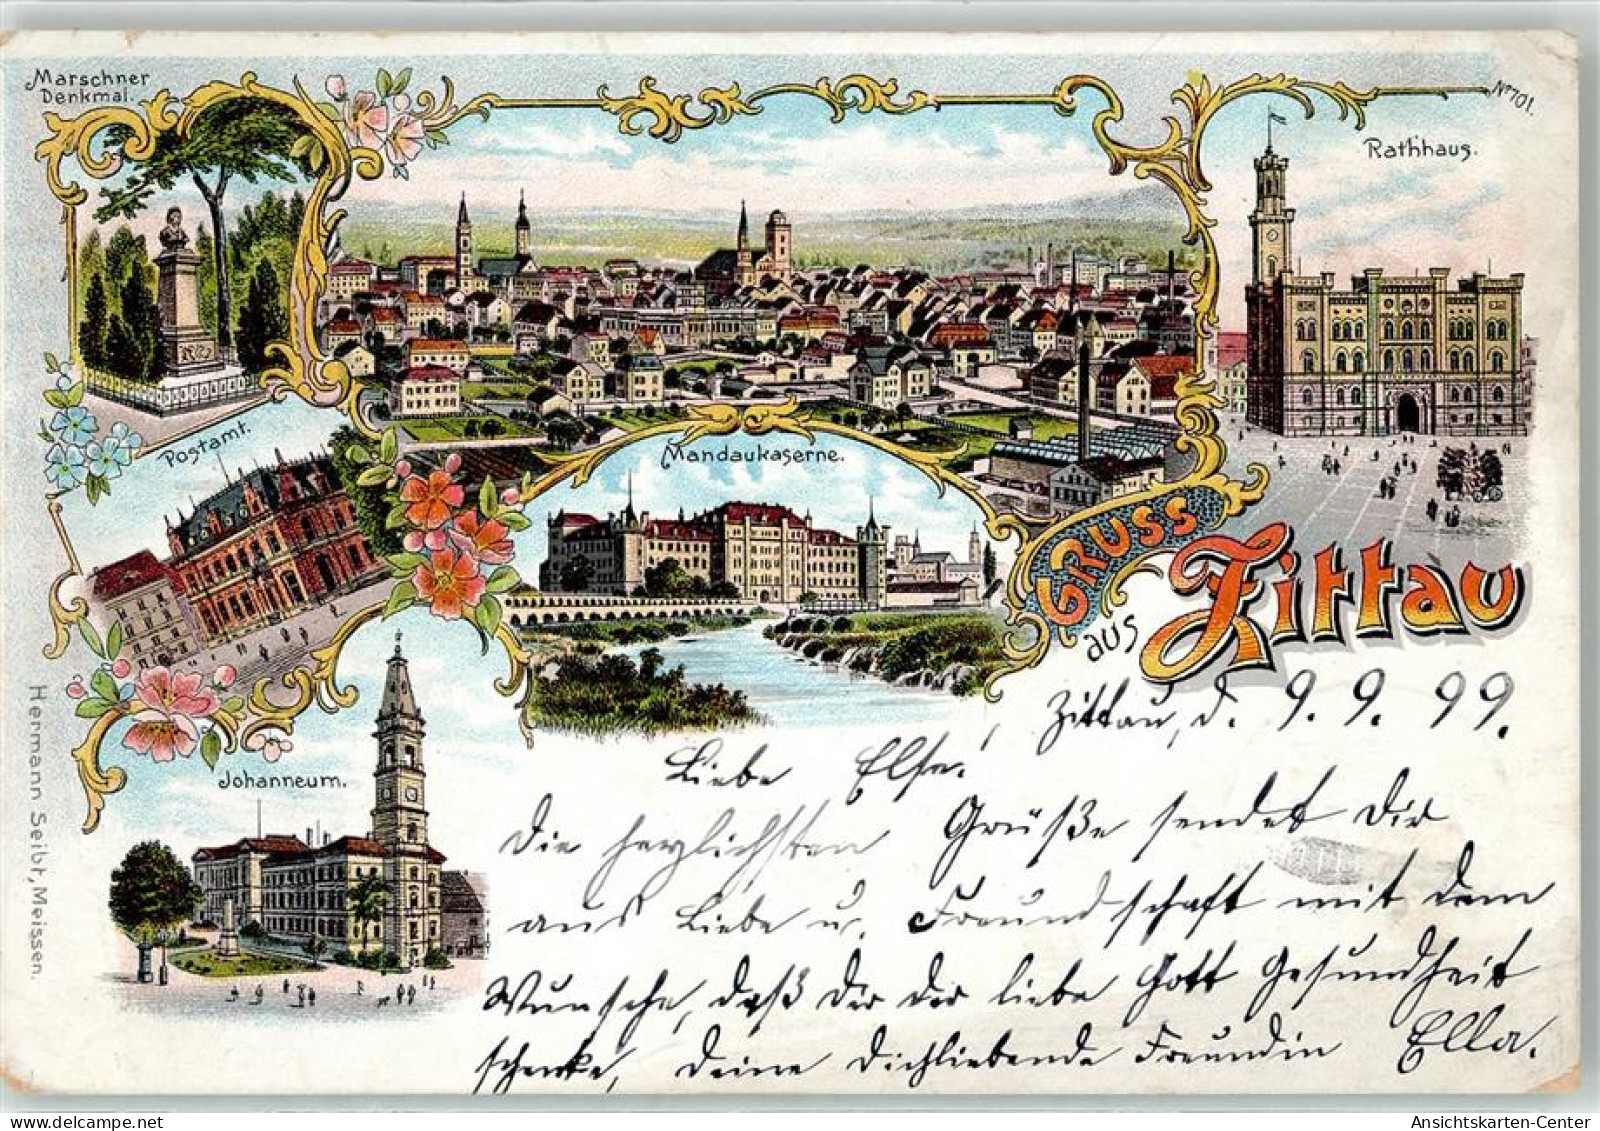 Marschner
Denkmal.
No 701.
Rathhaus.
Postamt.
Mandaukaserne.
GRUSS
aus
Zittau
Johanneum.
Hermann Seibt, Meissen.
Zittau, d. 9. 9. 99.
Liebe Elsa!
Die herzlichsten Grüße sendet Dir
aus Liebe u. Freundschaft mit dem
Wunsche, daß Dir der liebe Gott Gesundheit
schenke, Deine Dichliebende Freundin Ella.
Ansichtskarten-Center